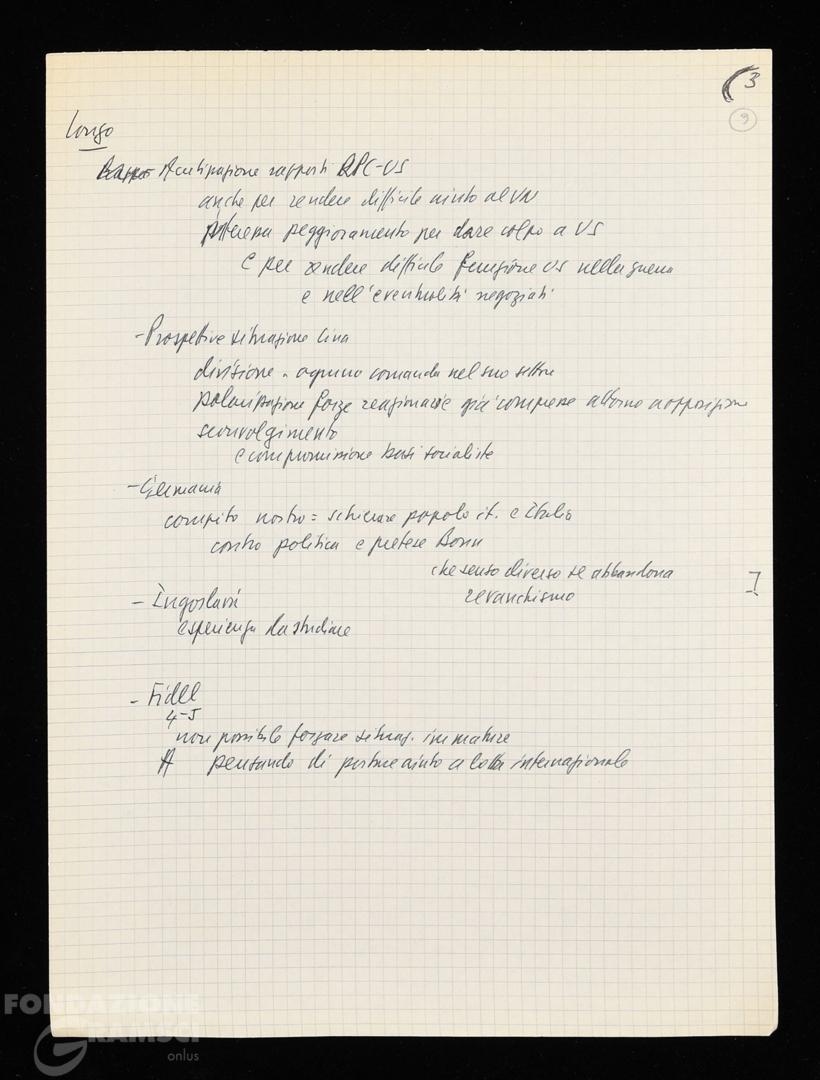 3
9
Longo
- Acutizzazione rapporti RPC-US
anche per rendere difficile aiuto al VN
peggioramento per dare colpo a US
e per rendere difficile funzione US nella guerra
e nell'eventualità negoziati
- Prospettive situazione Cina
divisione - ognuno comanda nel suo settore
polarizzazione forze reazionarie già compresse attorno a opposizione
sconvolgimento
e compromissione basi socialiste
- Germania
compito nostro = schierare popolo it. e Italia
contro politica e pretese Bonn
che senso diverso se abbandona
revanchismo
- Iugoslavi
esperienza da studiare
- Fidel
4-5
non possibile forzare situaz. immature
A pensando di portare aiuto a lotta internazionale
FONDAZIONE
GRAMSCI
onlus